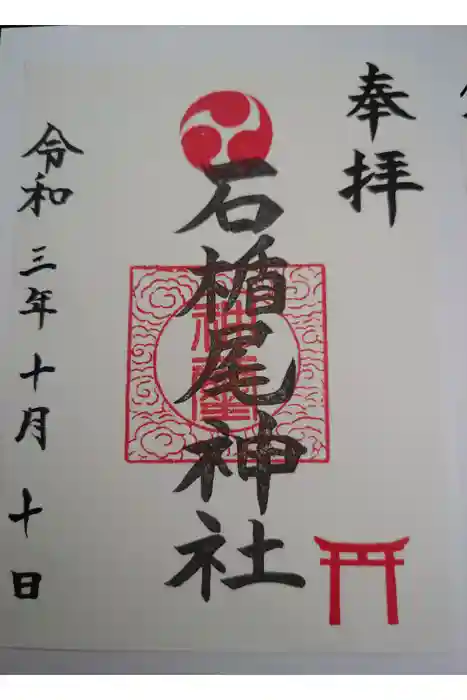 奉拝
石楯尾神社
令和三年十月十日